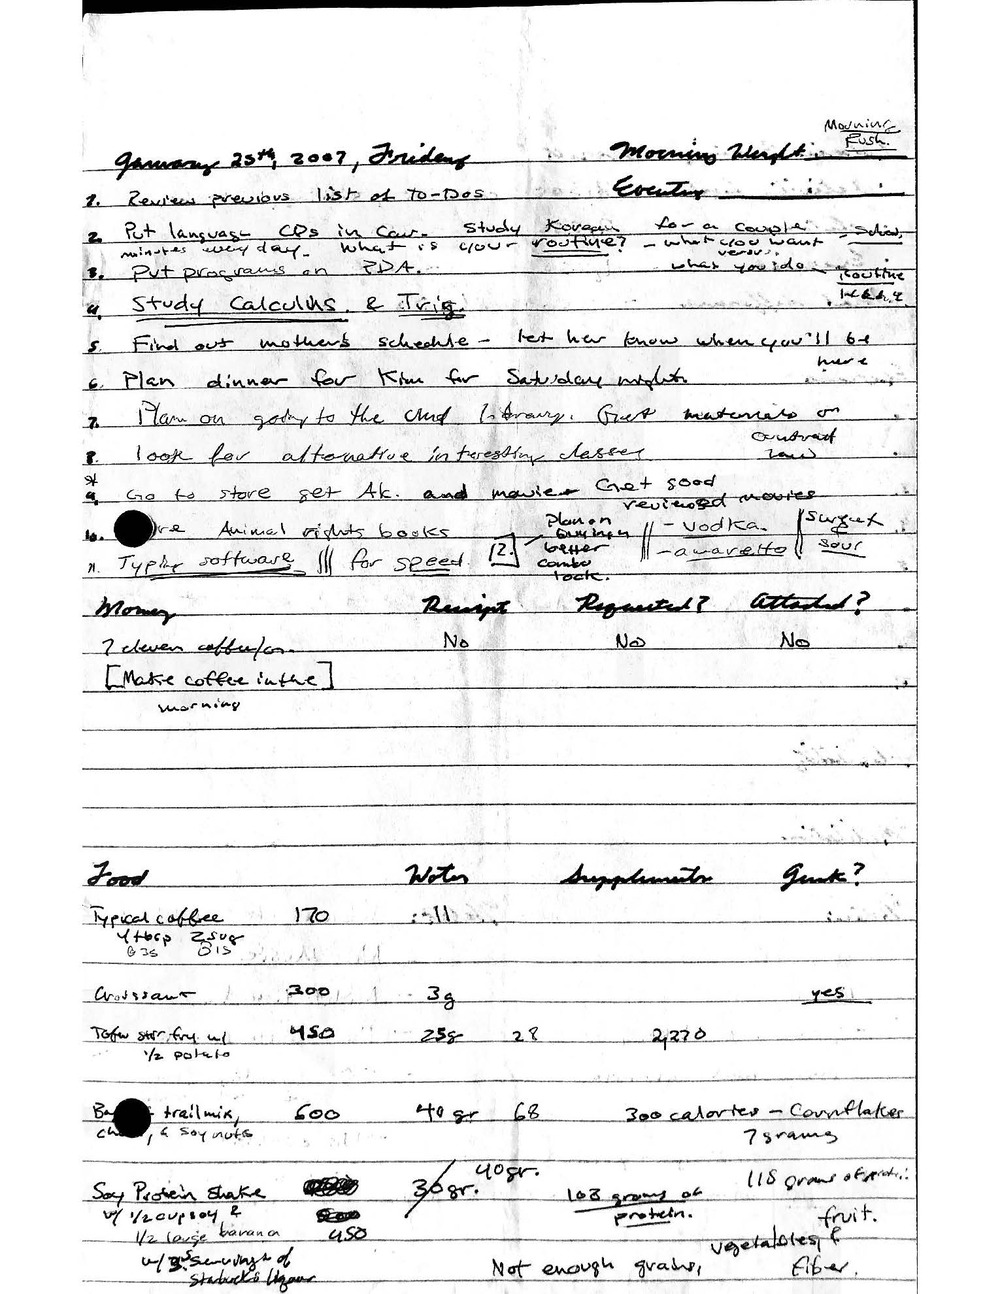 Morning
Rush.
January 25th, 2007, Friday Morning Weight
1. Review previous list of To-Dos Evening
2. Put language CDs in Car. Study Korean for a couple
minutes every day. What is your routine? - what you want
versus
3. Put programs on PDA. what you do - routine
4. Study Calculus & Trig.
5. Find out mother's schedule - let her know when you'll be
here
6. Plan dinner for Kim for Saturday night.
7. Plan on going to the library. Get materials on
contract
law
8. look for alternative interesting classes
9. Go to store get Ak. and movies Get good
reviewed movies
10. Animal rights books
11. Typing software for speed.
12. Plan on
buying a
better
combo
lock.
- vodka.
- amaretto
sweet
&
sour
Money Receipt Requested? Attached?
7 eleven No No No
[Make coffee in the]
morning
Food Water Supplements Gunk?
Typical coffee 170
4 tbsp 2 sug
Croissant 300 3g yes
Tofu stir fry w/ 450 25g 28 2,270
1/2 potato
trail mix, 600 40 gr 68 300 calories - Cornflakes
& soy nuts 7 grams
40gr.
Soy Protein Shake 30gr. 108 grams of 118 grams of
protein.
w/ 1/2 cup soy &
1/2 large banana 450
w/ servings of
Starbucks liquor
Not enough grains, vegetables, & fruit.
fiber.